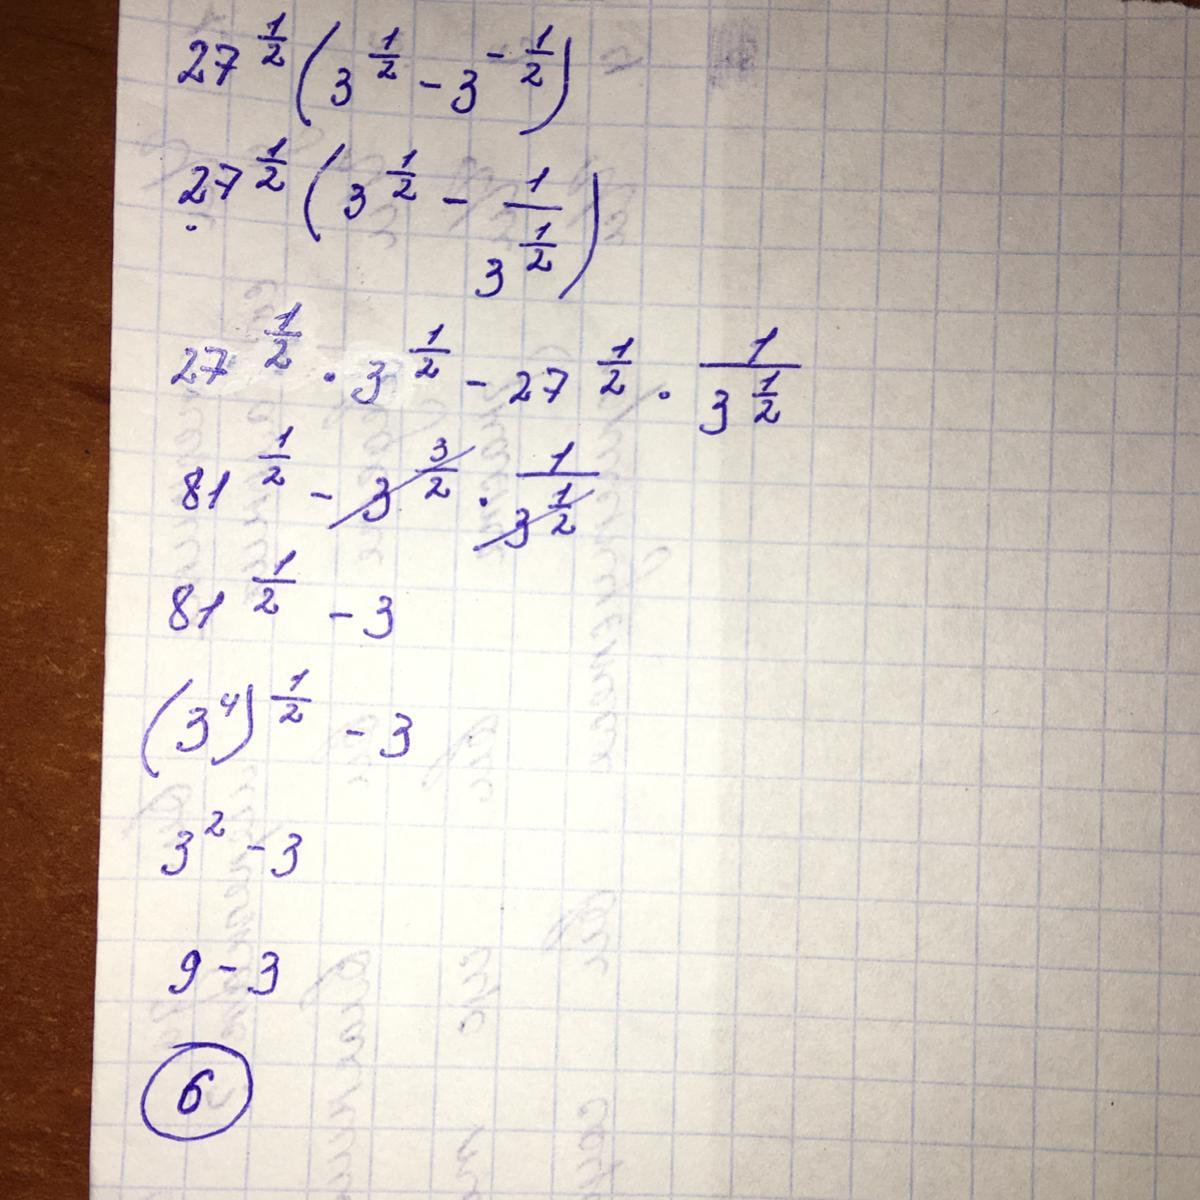 27^{\frac{1}{2}} (3^{\frac{1}{2}} - 3^{-\frac{1}{2}})
27^{\frac{1}{2}} (3^{\frac{1}{2}} - \frac{1}{3^{\frac{1}{2}}})
27^{\frac{1}{2}} · 3^{\frac{1}{2}} - 27^{\frac{1}{2}} · \frac{1}{3^{\frac{1}{2}}}
81^{\frac{1}{2}} - 3^{\frac{3}{2}} · \frac{1}{3^{\frac{1}{2}}}
81^{\frac{1}{2}} - 3
(3^4)^{\frac{1}{2}} - 3
3^2 - 3
9 - 3
6